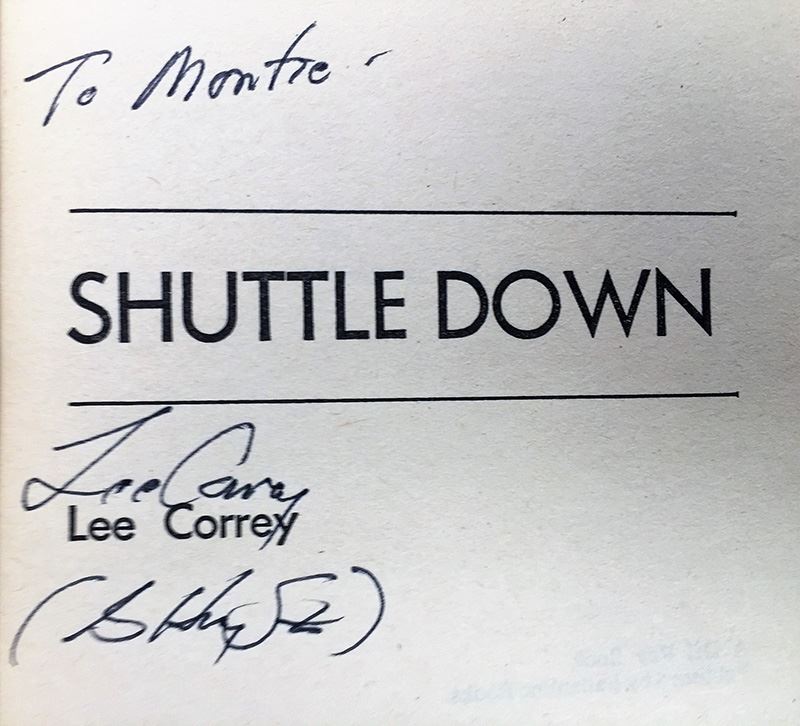 To Montie -
SHUTTLE DOWN
Lee Correy
Lee Correy